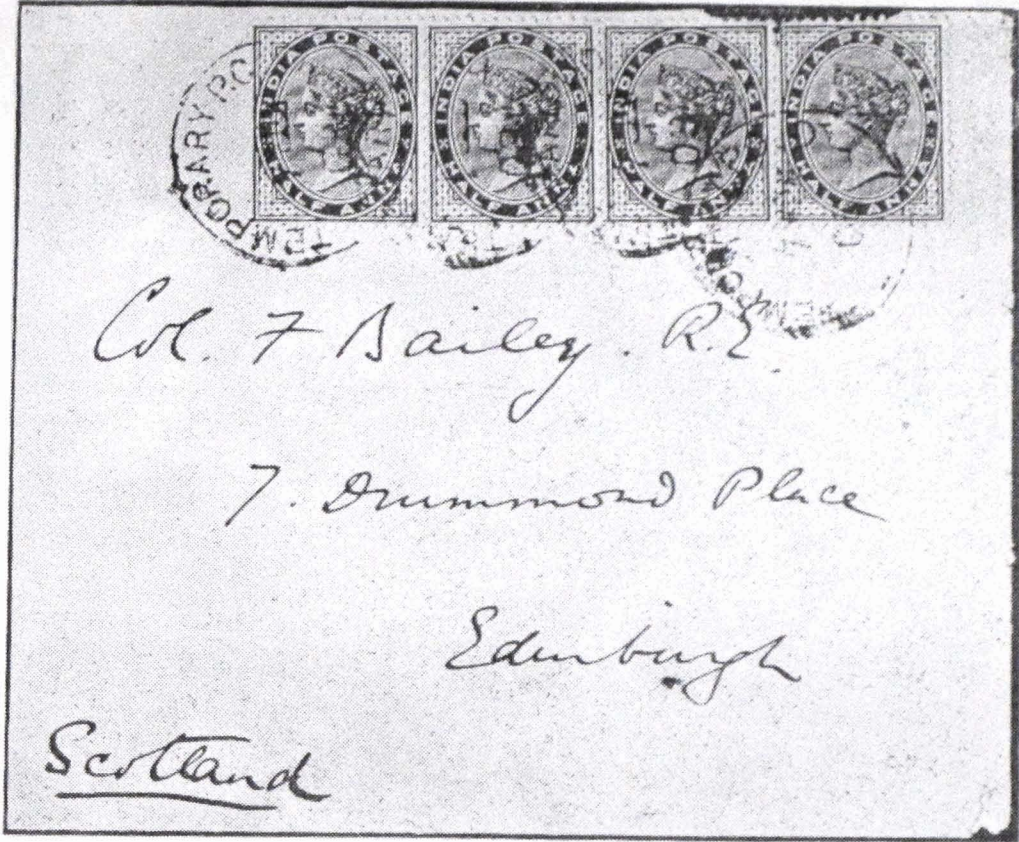 INDIA POSTAGE HALF ANNA
INDIA POSTAGE HALF ANNA
INDIA POSTAGE HALF ANNA
INDIA POSTAGE HALF ANNA
TEMPORARY P.O.
Col. F Bailey. R.E
7. Drummond Place
Edinburgh
Scotland